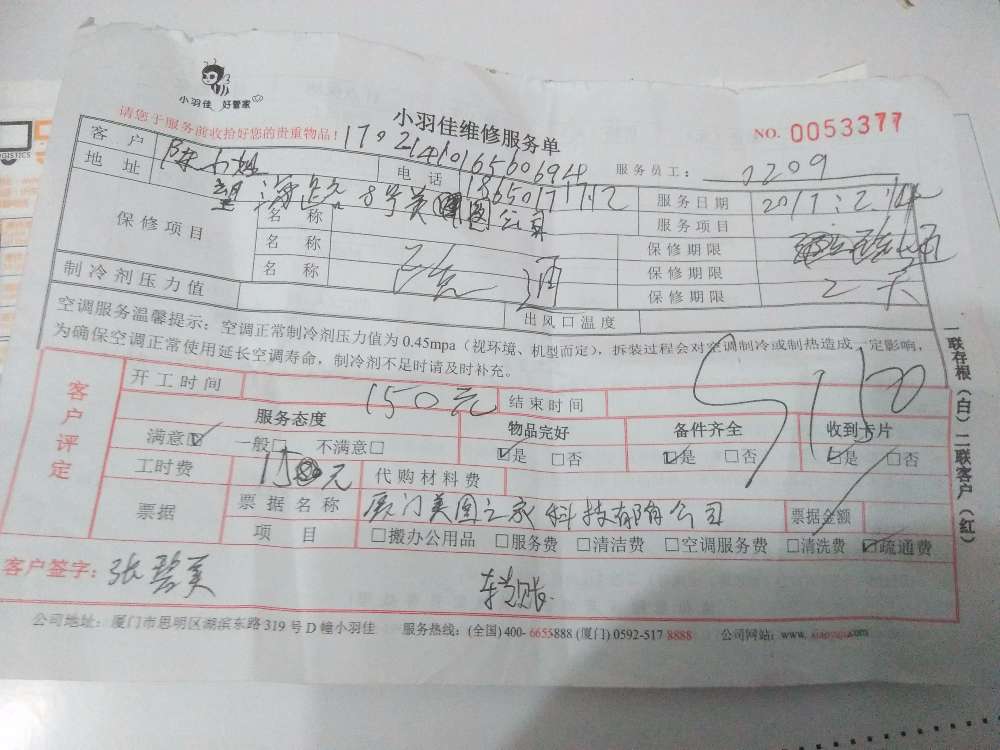 小羽佳 好管家
请您于服务前收拾好您的贵重物品！
小羽佳维修服务单
NO. 0053377
客户 陈小姐 电话 服务员工：
地址 望海路 8号美图公司 18650171712 服务日期 2017.2.14
保修项目 名称 服务项目
名称 保修期限
名称 保修期限
保修期限
制冷剂压力值 出风口温度
空调服务温馨提示：空调正常制冷剂压力值为0.45mpa（视环境、机型而定），拆装过程会对空调制冷或制热造成一定影响，
为确保空调正常使用延长空调寿命，制冷剂不足时请及时补充。
客户评定
开工时间 150元 结束时间
服务态度 物品完好 备件齐全 收到卡片
满意☑ 一般□ 不满意□ ☑是 □否 ☑是 □否 ☑是 □否
工时费 150元 代购材料费
票据 票据名称 厦门美图之家科技有限公司 票据金额
项目 □搬办公用品 □服务费 □清洁费 □空调服务费 □清洗费 ☑疏通费
客户签字：张碧美 转账
公司地址：厦门市思明区湖滨东路319号D幢小羽佳 服务热线：(全国)400-6655888 (厦门)0592-517 8888 公司网站：www.xiaoyujia.com
一联存根（白）二联客户（红）